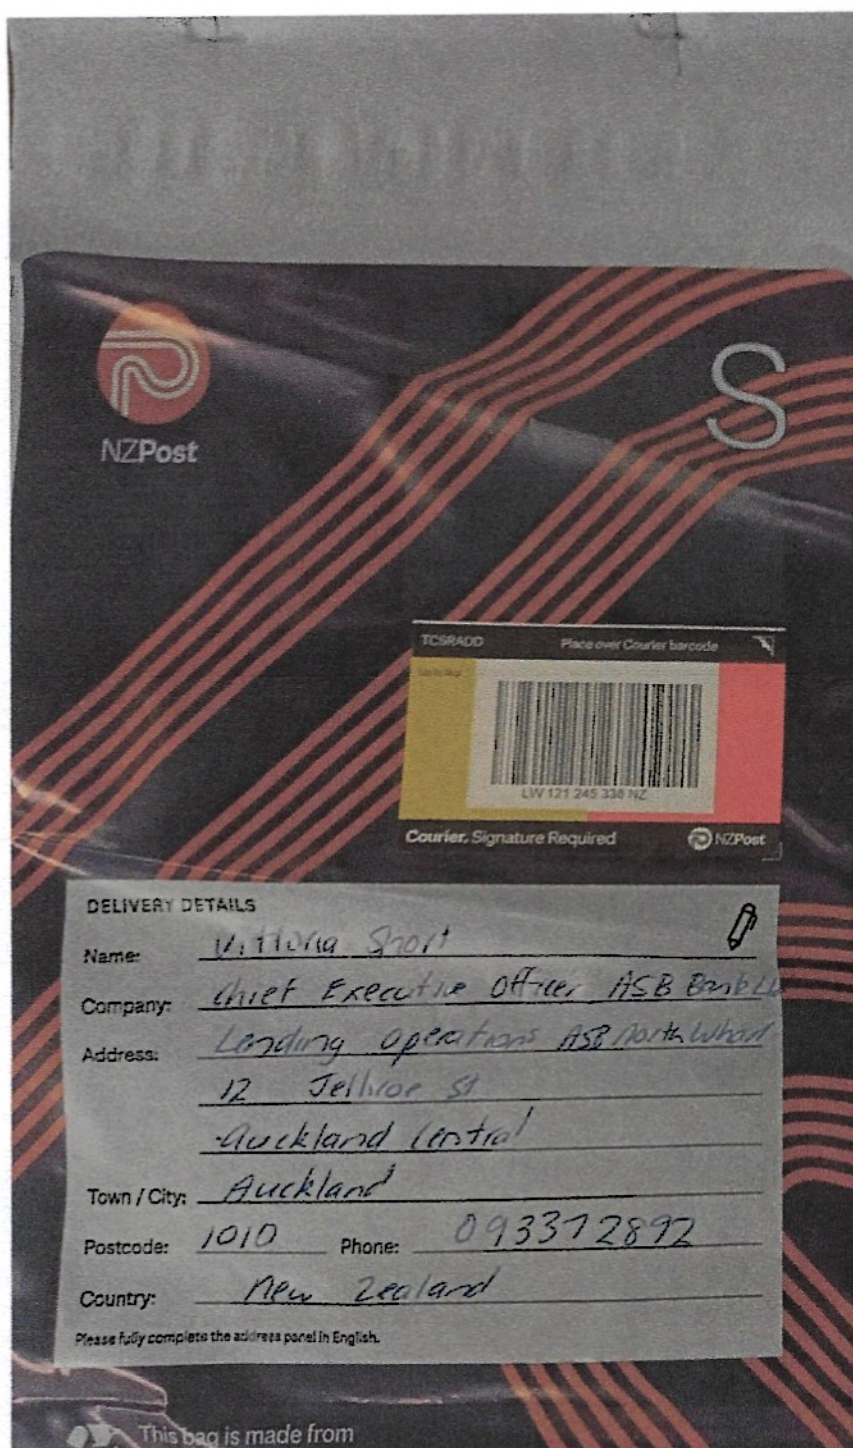 S
NZPost
TCSRADD Place over Courier barcode
LW 121 245 338 NZ
Courier. Signature Required NZPost
DELIVERY DETAILS
Name: Vittoria Short
Company: Chief Executive Officer ASB Bank
Address: Lending Operations ASB North Wharf
12 Jellicoe St
Auckland Central
Town / City: Auckland
Postcode: 1010 Phone: 093372892
Country: New Zealand
Please fully complete the address panel in English.
This bag is made from